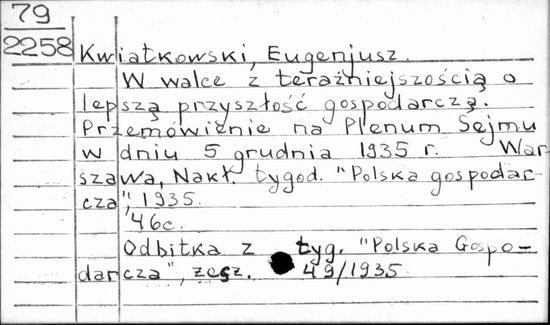 79
2258
Kwiatkowski, Eugenjusz.
W walce z teraźniejszością o
lepszą przyszłość gospodarczą.
Przemówienie na Plenum Sejmu
w dniu 5 grudnia 1935 r. War
szawa, Nakł. tygod. "Polska gospodar-
cza", 1935.
46c.
Odbitka z tyg. "Polska Gospo-
darcza", zesz. 49/1935